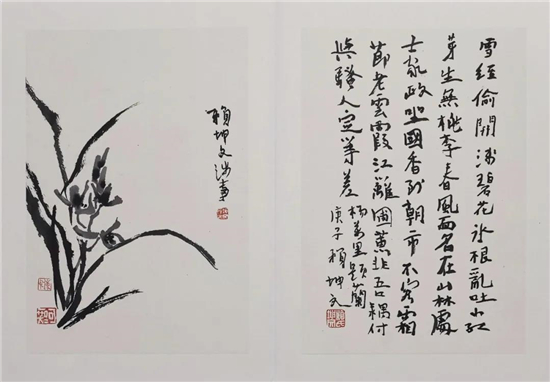 雪經偷開淺碧花氷根亂吐小紅
芽生無桃李春風面名在山林處
士家政坐國香到朝市不容霜
節老雲霞江離圃蕙非吾耦付
與騷人定等差
楊萬里題蘭
庚子賴坤文
賴坤文